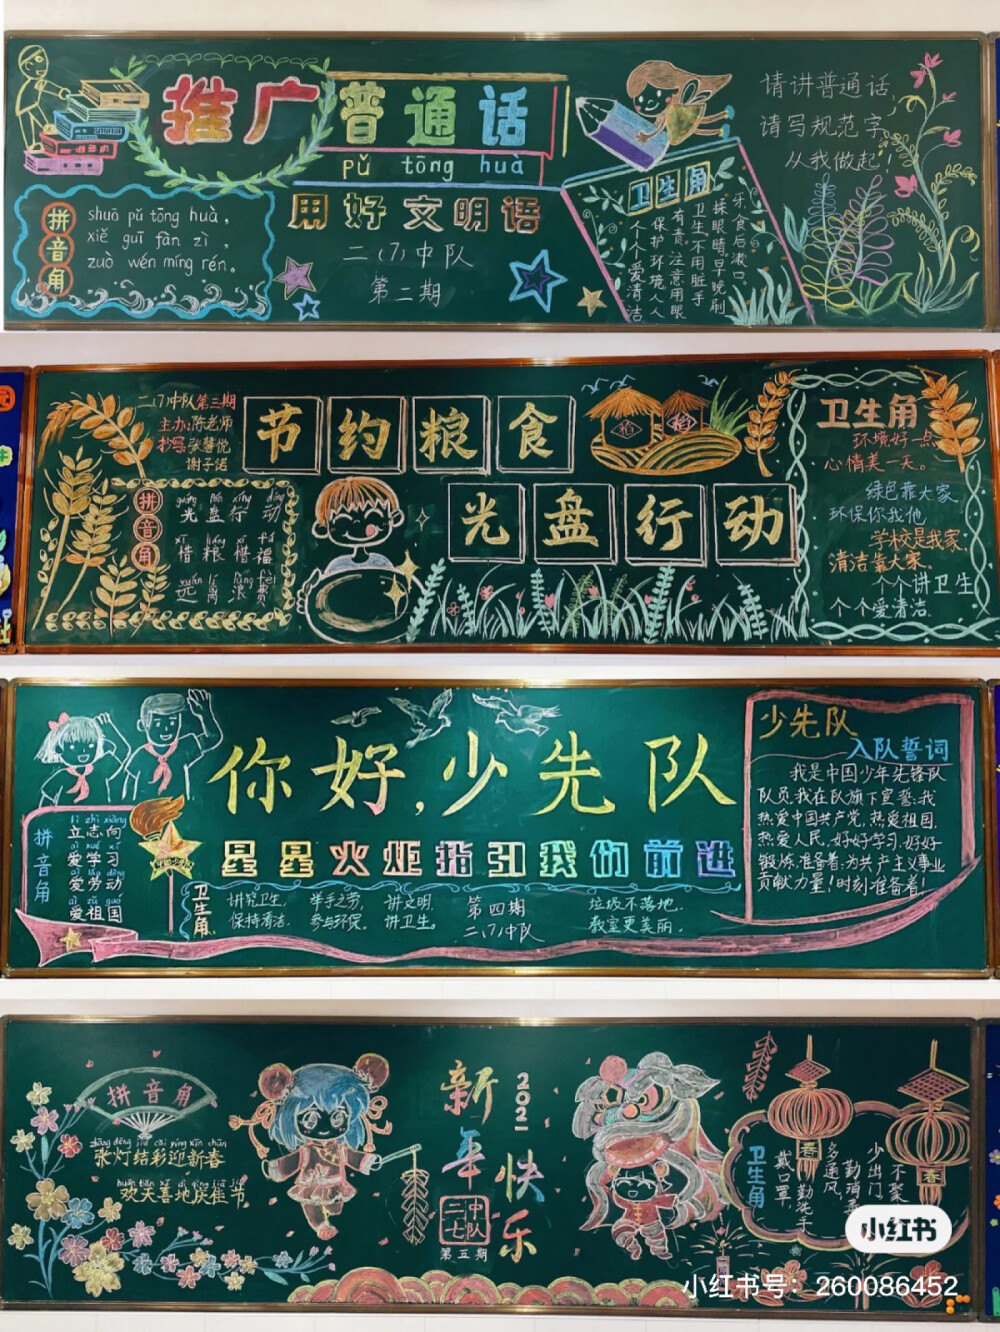 推广普通话
pǔ tōng huà
用好文明语
二(7)中队
第二期
拼音角
shuō pǔ tōng huà，
xiě guī fàn zì，
zuò wén míng rén。
卫生角
牙，食后漱口。
抹眼睛早晚刷
卫生不用脏手
有责，注意用眼
保护环境人人
个个爱清洁
请讲普通话，
请写规范字，
从我做起！
二(7)中队第三期
主办：陈老师
抄写：张馨悦
谢子诺
节约粮食
光盘行动
稻
稻
拼音角
guāng pán xíng dòng
光盘行动
xī liáng xī fú
惜粮惜福
yuǎn lí làng fèi
远离浪费
卫生角
环境好一点，
心情美一天。
绿色靠大家
环保你我他，
学校是我家，
清洁靠大家。
个个讲卫生
个个爱清洁。
你好，少先队
星星火炬指引我们前进
拼音角
lì zhì xiàng
立志向
ài xué xí
爱学习
ài láo dòng
爱劳动
ài zǔ guó
爱祖国
卫生角
讲究卫生，
保持清洁。
举手之劳，
参与环保。
讲文明，
讲卫生。
第四期
二(7)中队
垃圾不落地，
教室更美丽。
少先队
入队誓词
我是中国少年先锋队
队员，我在队旗下宣誓：我
热爱中国共产党，热爱祖国，
热爱人民，好好学习，好好
锻炼，准备着：为共产主义事业
贡献力量！时刻准备着！
拼音角
zhāng dēng jié cǎi yíng xīn chūn
张灯结彩迎新春
huān tiān xǐ dì qìng jiā jié
欢天喜地庆佳节
2021
新年快乐
二七中队
第五期
卫生角
不聚
少出门
勤消
多通风
勤洗手
戴口罩，
春
春
小红书
小红书号：260086452